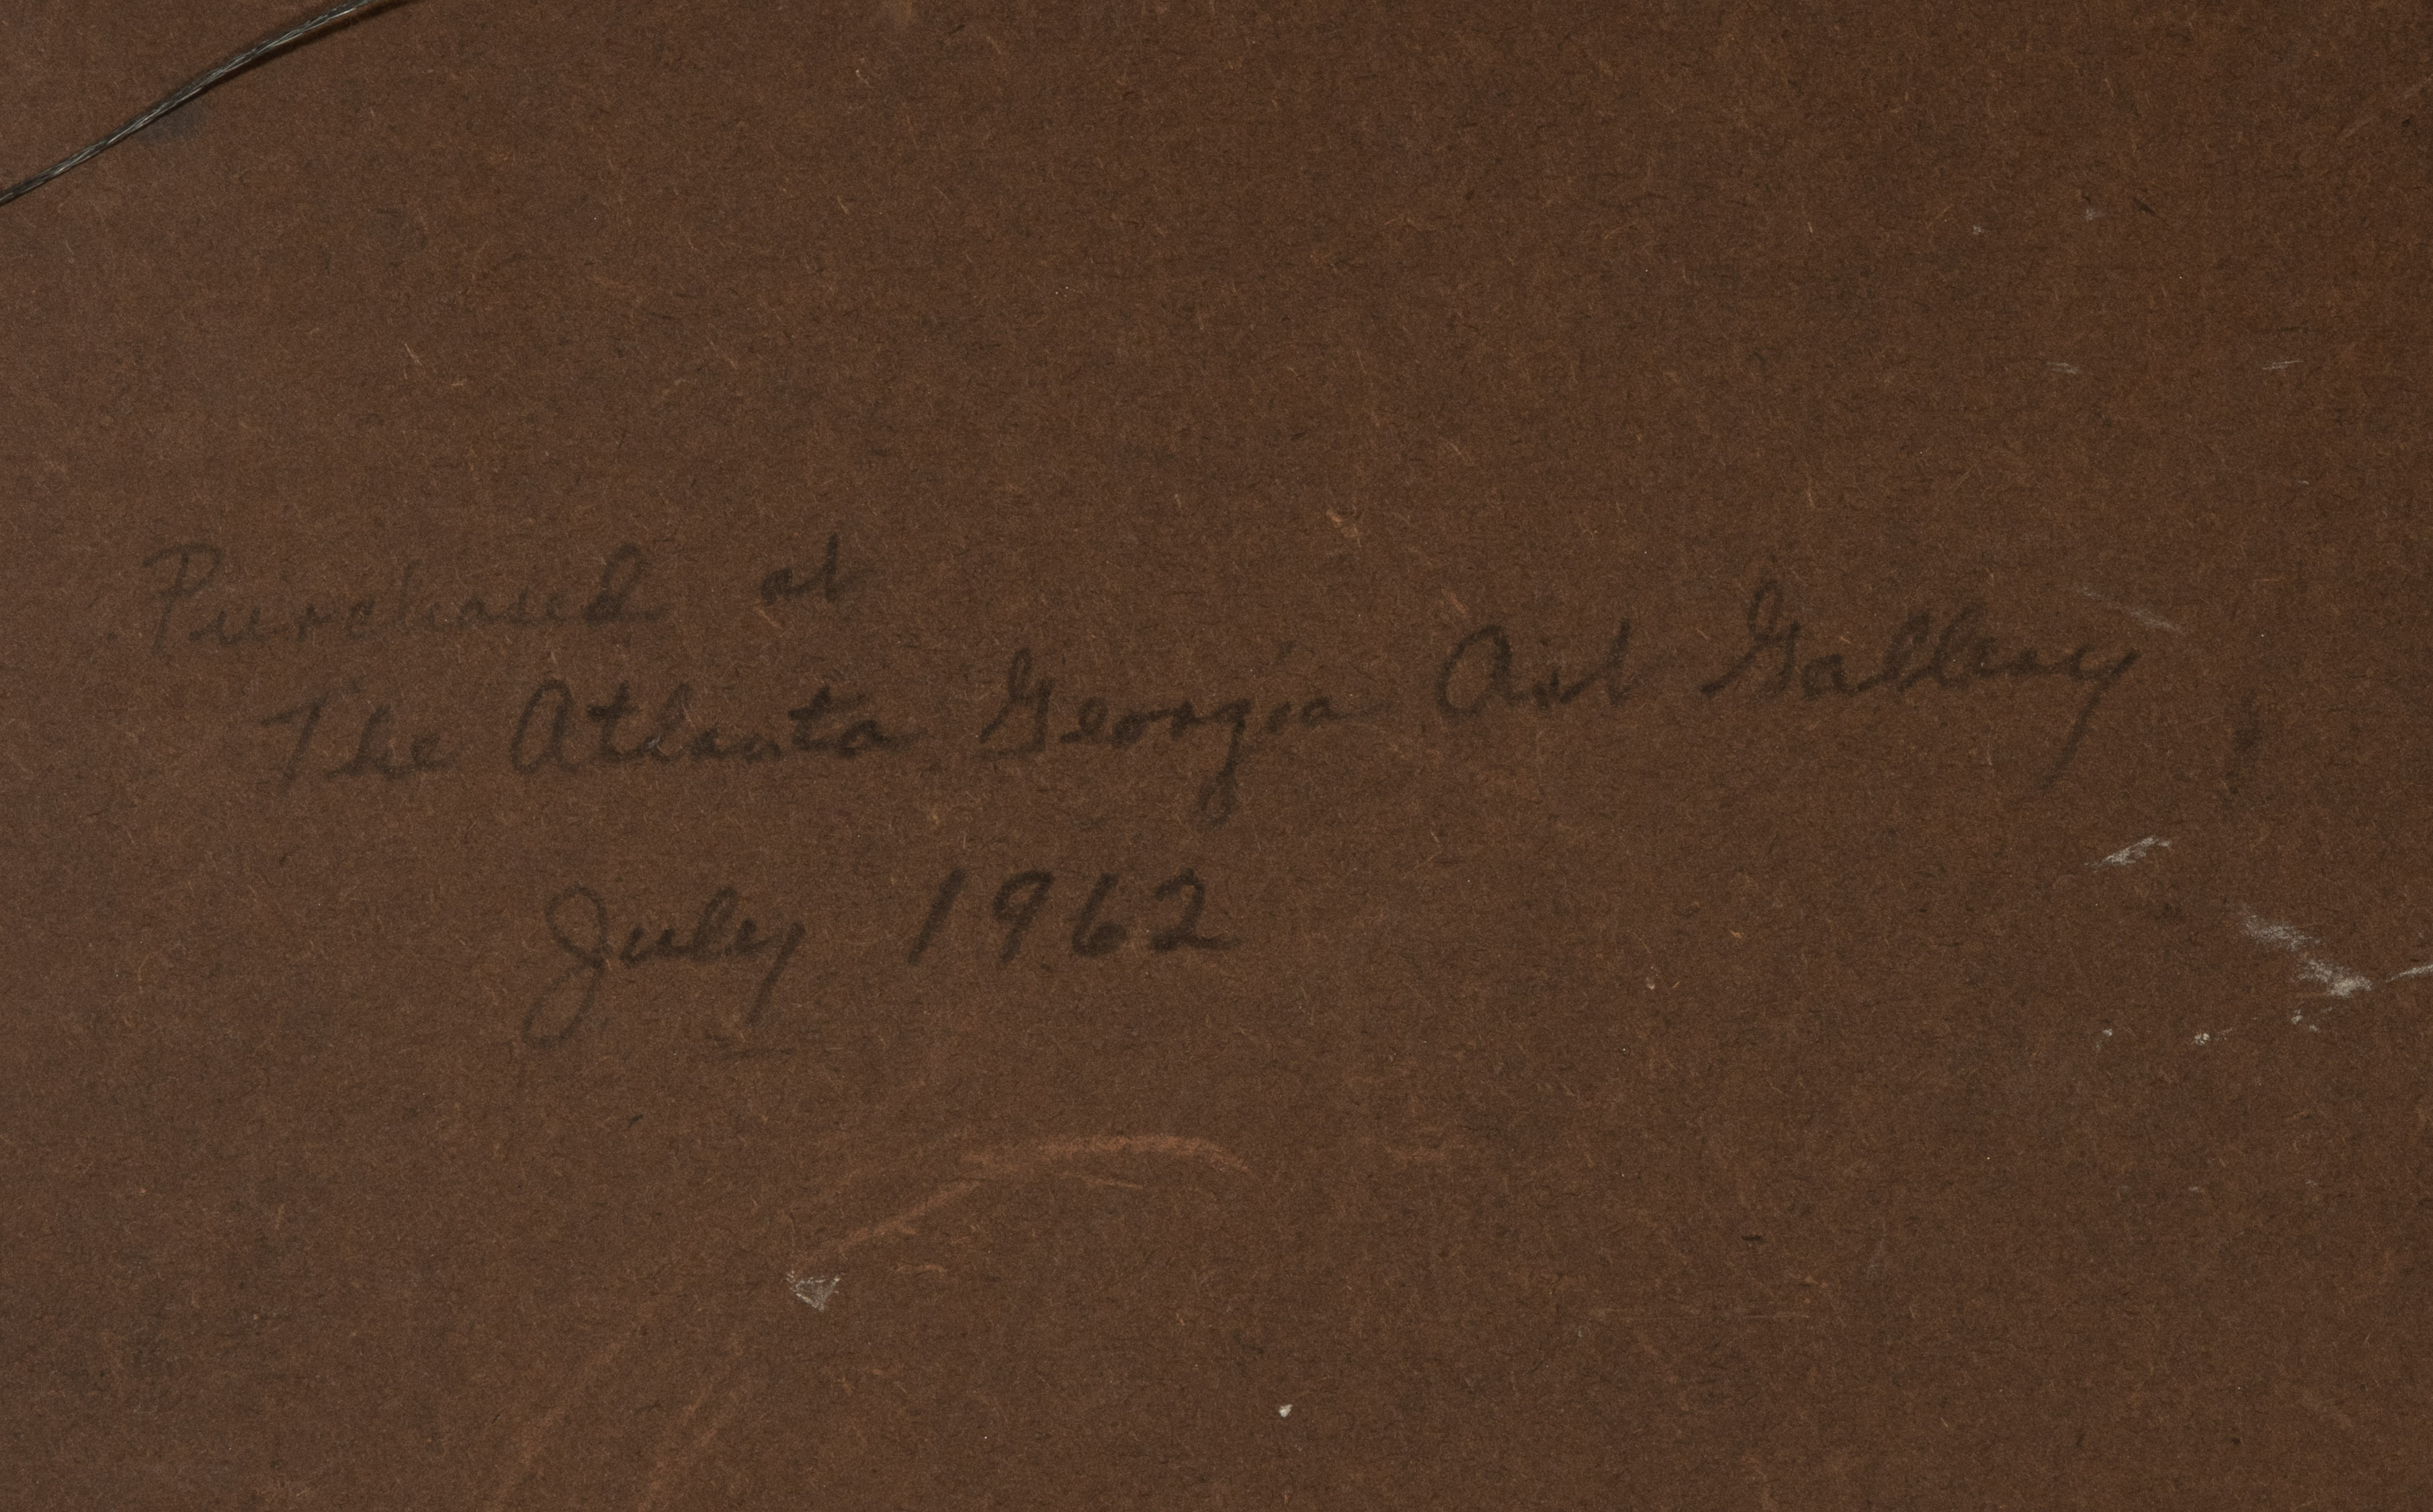 Purchased at
The Atlanta Georgia Art Gallery
July 1962